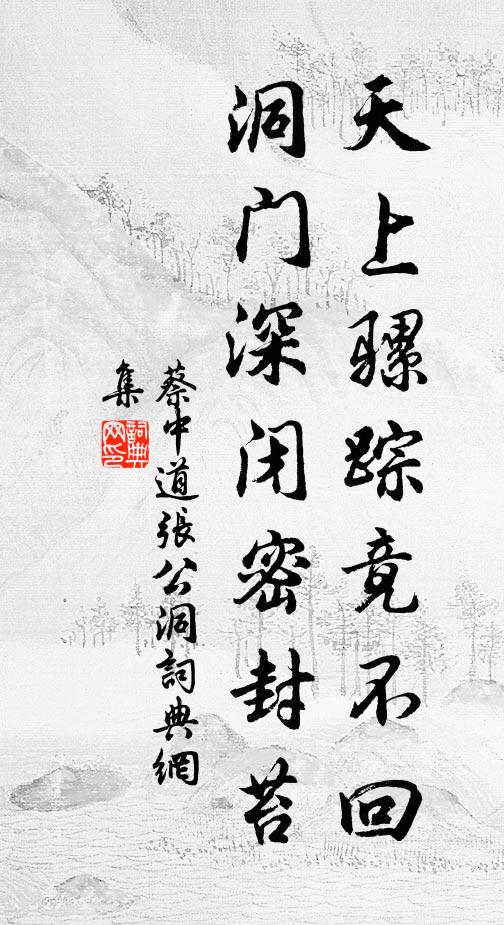 天上骡踪竟不回
洞门深闭密封苔
蔡中道張公洞詞典網
集
詞典
网印